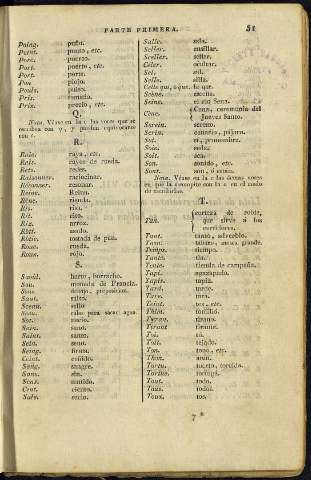 PARTE PRIMERA. 51
Poing. puño.
Point. punto, etc.
Porc. puerco.
Port. puerto, etc.
Porte. porte.
Pou. piojo.
Pouls. pulso.
Pris. tomado.
Prix. precio, etc.
Q.
Nota. Véase en la c las voces que se
escriban con q, y puedan equivocarse
con c.
R.
Raie. raya, etc.
Rais. rayos de rueda.
Rets. redes.
Raisonner. raciocinar.
Résonner. resonar.
Reine. Reina.
Rêne. rienda.
Ris. risa.
Rit. rito.
Riz. arroz.
Rôt. asado.
Roue. rueda.
Roux. rojo.
S.
Saoul. harto, borracho.
Sou. moneda de Francia.
Sous. debajo, preposicion.
Saut. salto.
Sceau. sello
Seau. cubo para sacar agua.
Sot. necio.
Sain. sano.
Saint. santo.
Sein. seno.
Seing. firma.
Ceint. ceñido.
Sang. sangre.
Sans. sin.
Sens. sentido.
Cent. ciento.
Sale. sucio.
Salle. sala.
Seller. ensillar.
Sceller. sellar.
Celer. ocultar.
Sel. sal.
Selle. silla.
Scène. escena.
Seine. el rio Sena.
Cène. Cena, ceremonia del
Jueves Santo.
Serein. sereno.
Serin. canario, pájaro.
Soie. seda.
Son. sonido, etc.
Sont. son, ó están.
Nota. Véase en la c las demas voces
T.
Tan. corteza de roble,
que sirve á los
curtidores.
Tant. tanto, adverbio.
Tante. tia.
Tente. tienda de campaña.
Tapi. agazapado.
Tapis. tapiz.
Tard. tarde.
Tare. tara.
Teint. tez, etc.
Thim. tomillo.
Tyran. tirano.
Tirant tirante.
Toi. tú.
Toit. tejado.
Ton. tono, etc.
Thon. atun.
Tortu. tuerto, torcido.
Tortue. tortuga.
Tout. todo.
Tous. todos.
Toux. tos.
7 *